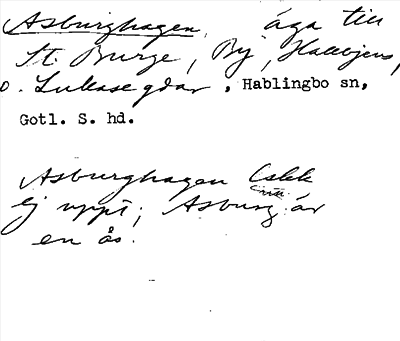 Asburghagen, äga till
St. Burge, By, Hallvjens,
o. Lukase gdar, Hablingbo sn,
Gotl. S. hd.
Asburghagen
ej uppt; Asburg är
en ås.